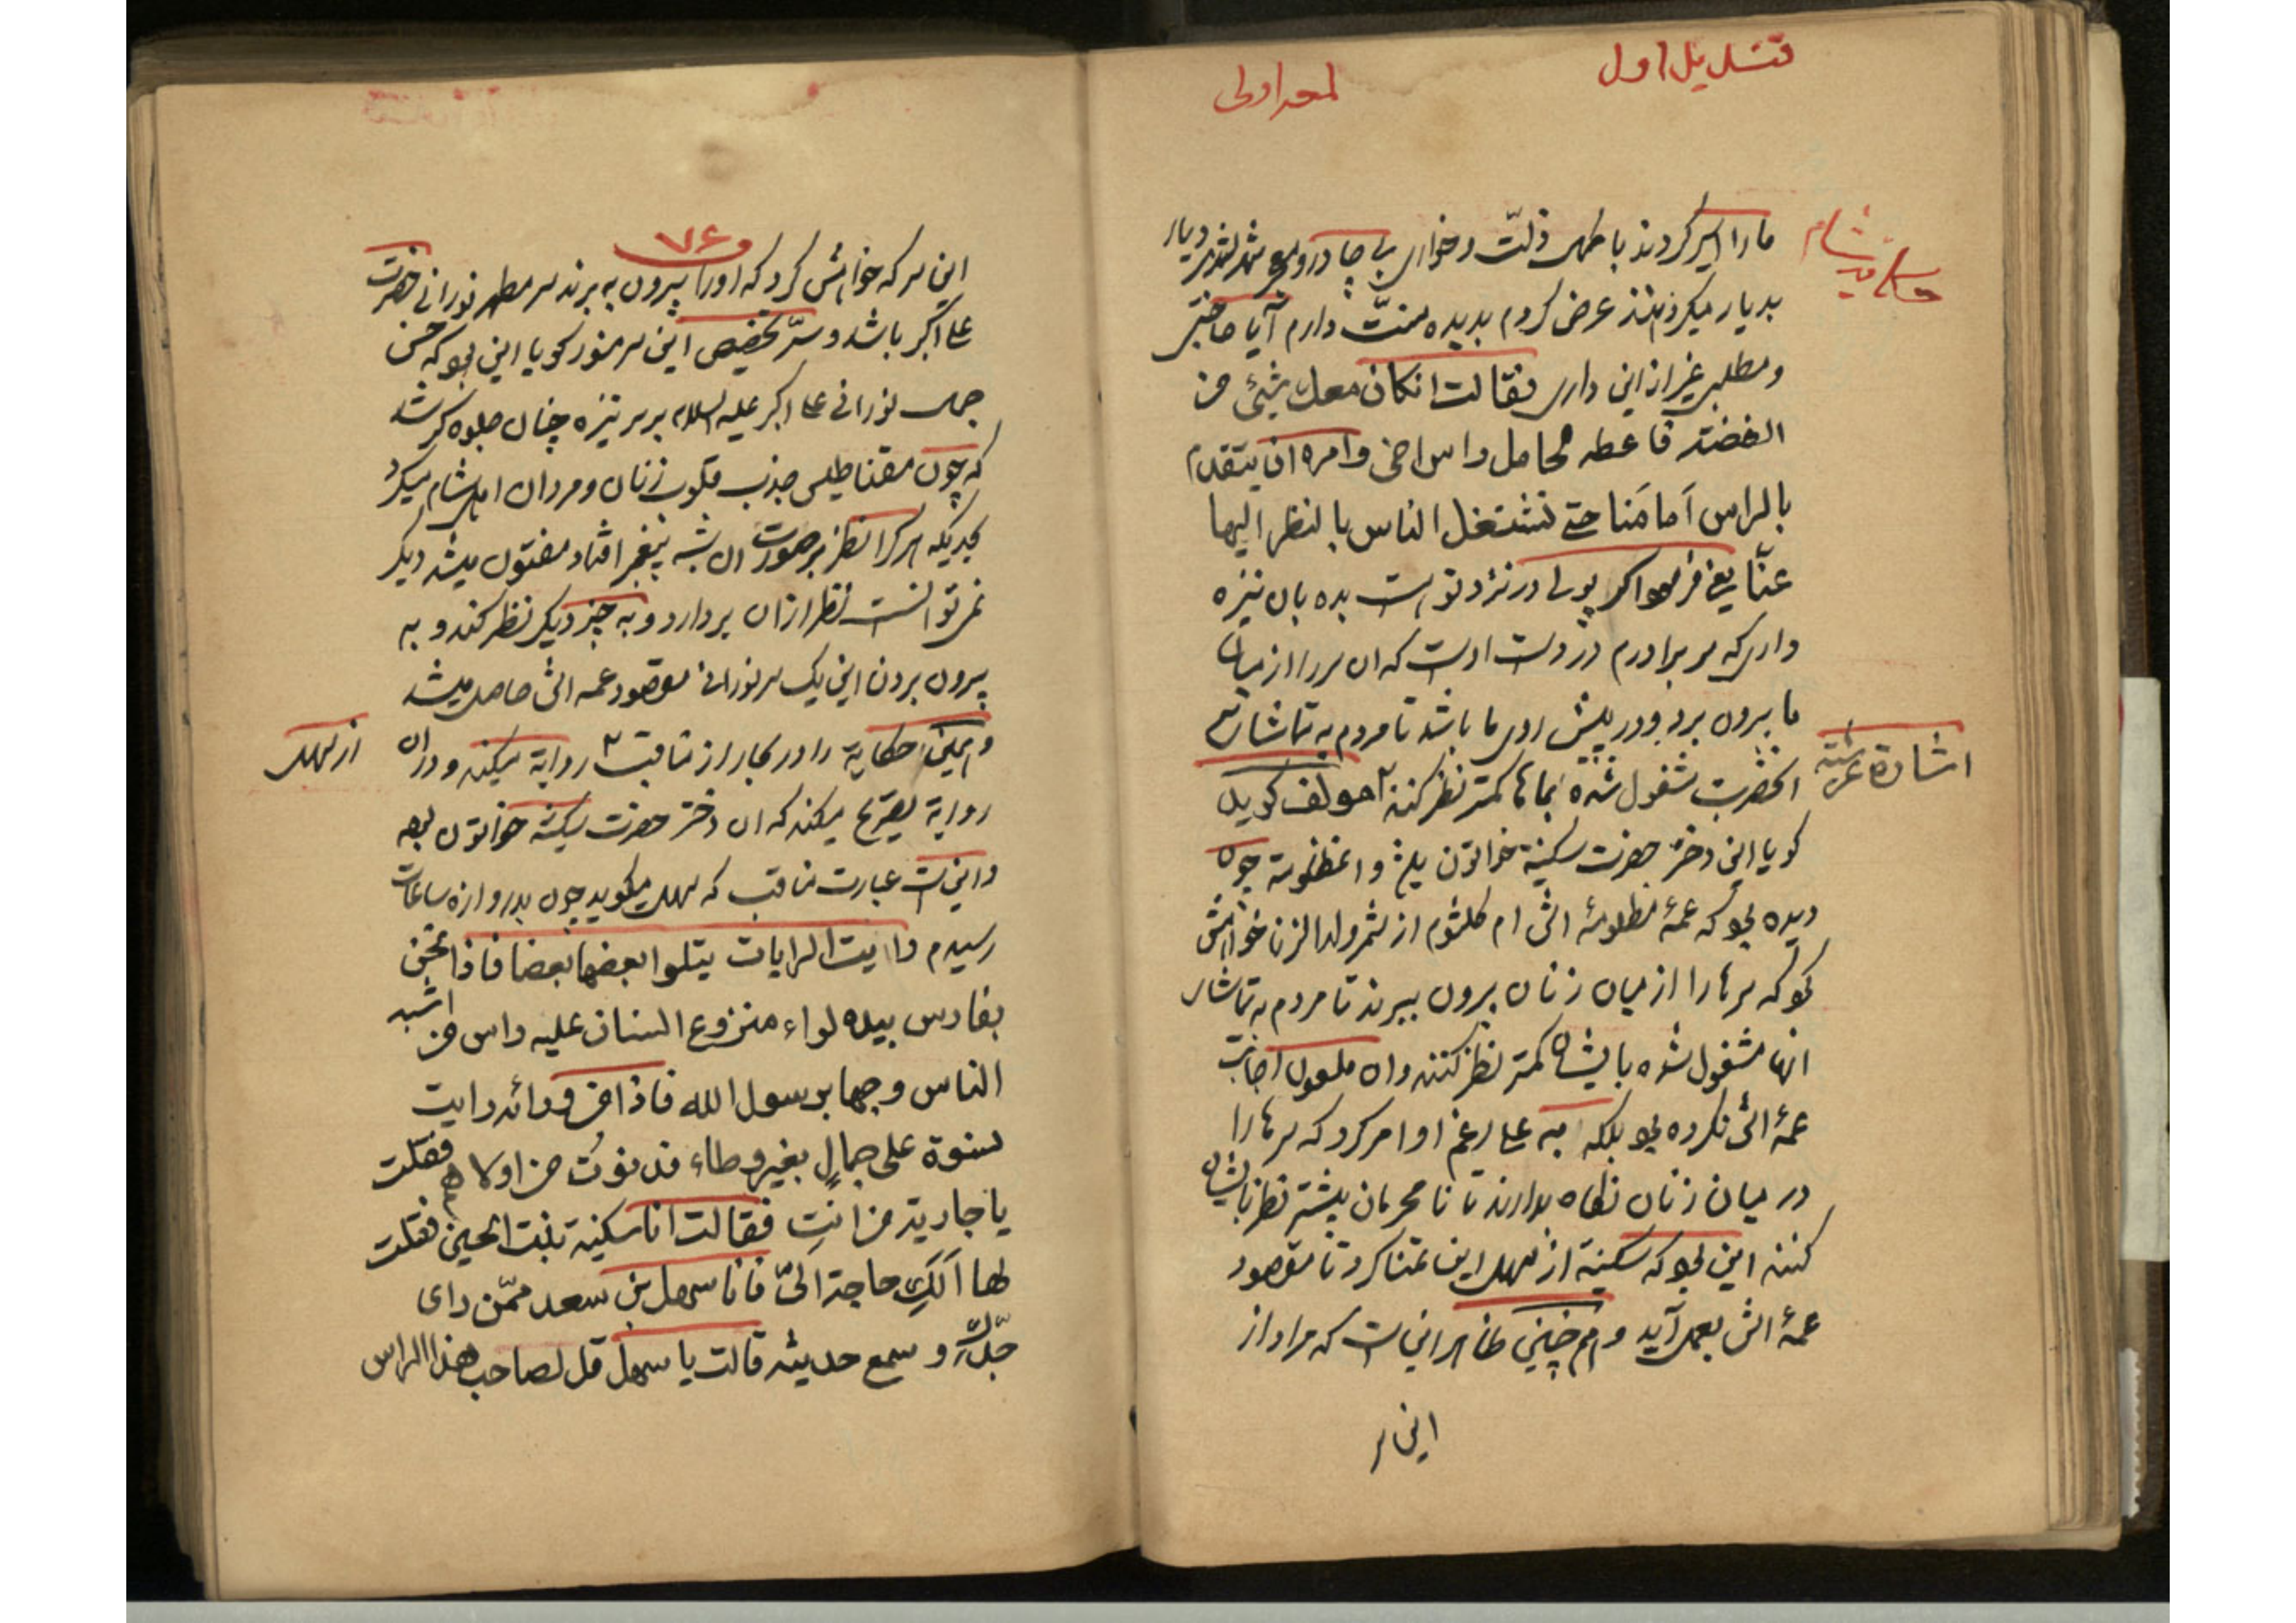 قندیل اول
لمعه اولی
ما را اسیر کردند با ظهر ذلّت و خواری بی چادر و شهر بشهر دیار
بدیار میکردانند عرض کردم بدیده منّت دارم آیا حاجتی
و مطلبی غیر از این داری فقالت انکان معك شیئ من
الفضة فاعطه لحامل راس اخی وامره ان یتقدم
بالراس اَمامَنا حتے تشتغل الناس بالنظر الیها
عنّا یعنی فرمود اکر پولی در نزد تو است بده بان نیزه
داری که سر برادرم در دست اوست که ان سر را از میان
ما بیرون برد و در پیش روی ما باشد تا مردم به تماشای
انحضرت مشغول شده بما ها کمتر نظر کنند مولف کوید
اشارة
کویا این دختر حضرت سکینة خواتون چون
دیده بود که عمۀ مظلومۀ اش ام کلثوم از شمر ولدالزنا خواهش
که سر ها را از میان زنان بیرون ببرند تا مردم به تماشای
انها مشغول شده بایشان کمتر نظر کنند و ان ملعون اجابت
عمۀ اش نکرده بود بلکه به علی رغم او امر کرد که سر ها را
در میان زنان نکاه بدارند تا نا محرمان بیشتر نظر بایشان
کنند این بود که سکینة از سهل این تمنا کرد تا مقصود
عمۀ اش بعمل آید و هم چنین ظاهر این است که مراد از
این سر
۷۶
این سر که خواهش کرد که اورا بیرون به برند سر مطهر نورانی حضرت
علی اکبر باشد و سرّ تخصیص این سر منور کویا این بود که حسن
جمال نورانی علی اکبر علیه السلام بر سر نیزه چنان جلوه کر شد
که چون مقناطیس جذب قلوب زنان و مردان اهل شام میکرد
بحدیکه هر کرا نظر بر صورت ان شبه پیغمبر افتاد مفتون میشد دیکر
نمیتوانست نظر از ان بردارد و به چیز دیکر نظر کند و به
بیرون بردن این یک سر نورانی مقصود عمه اش حاصل میشد
و همین حکایة را در بحار از مناقب روایة میکند و در ان
از سهل
روایة تصریح میکند که ان دختر حضرت سکینة خواتون بود
و این است عبارت مناقب که سهل میکوید چون بدروازه ساعات
رسیدم رایت الرایات یتلوا بعضها بعضا فاذا نحن
بفارس بیده لواء منزوع السنان علیه راس من اشبه
الناس وجها برسول الله فاذا من ورائه رایت
نسوة علی جمالٍ بغیر وطاء فدنوتُ من اولاهم فقلت
یا جاریة من انتِ فقالت انا سکینة بنت الحسین فقلت
لها اَلَكِ حاجة الیّ فانا سهل بن سعد ممّن رای
جدّكِ و سمع حدیثه قالت یا سهل قل لصاحب هذا الراس